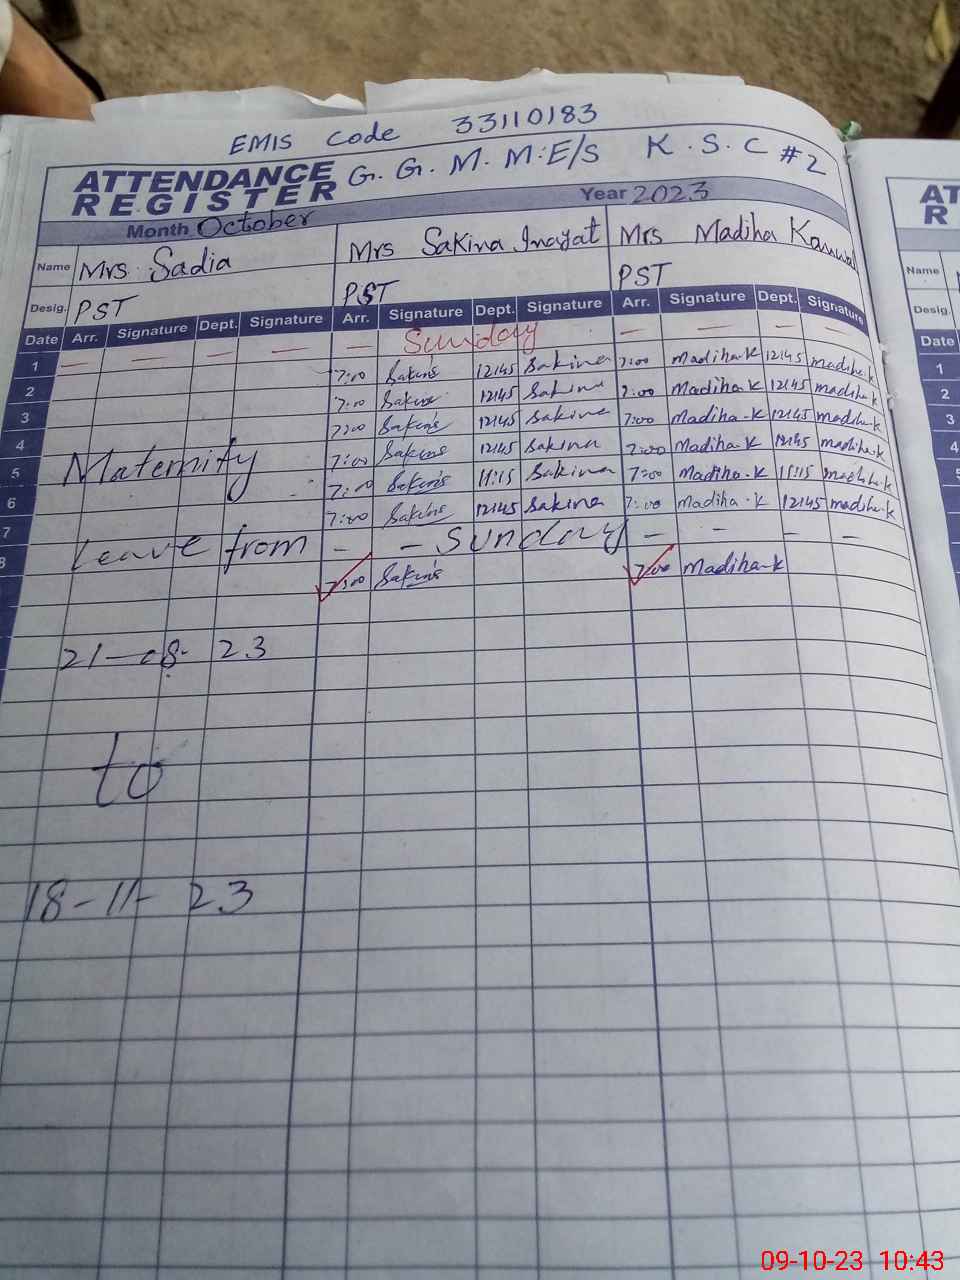 EMIS Code 33110183
ATTENDANCE REGISTER G. G. M. M. M:E/S K. S. C #2
Month October Year 2023
Name Mrs Sadia Mrs Sakina Inayat Mrs Madiha Kanwal
Desig. PST PST PST
Date Arr. Signature Dept. Signature Arr. Signature Dept. Signature Arr. Signature Dept. Signature
1 — — — — — Sunday — — — —
2 7:00 Sakina 12:45 Sakina 7:00 Madiha-K 12:45 madiha-k
3 7:00 Sakina 12:45 Sakina 7:00 Madiha K 12:45 madiha-k
4 7:00 Sakina 12:45 Sakina 7:00 Madiha-K 12:45 madiha-k
5 Maternity 7:00 Sakina 12:45 Sakina 7:00 Madiha K 12:45 madiha-k
6 7:00 Sakina 11:15 Sakina 7:00 Madiha-K 11:15 madiha-k
7 7:00 Sakina 12:45 Sakina 7:00 Madiha-K 12:45 madiha-k
8 Leave from - - Sunday - - - -
7:00 Sakina 7:00 Madiha-K
21-08-23
to
18-11-23
AT
R
Name
Desig.
Date
1
2
3
4
5
6
7
8
09-10-23 10:43